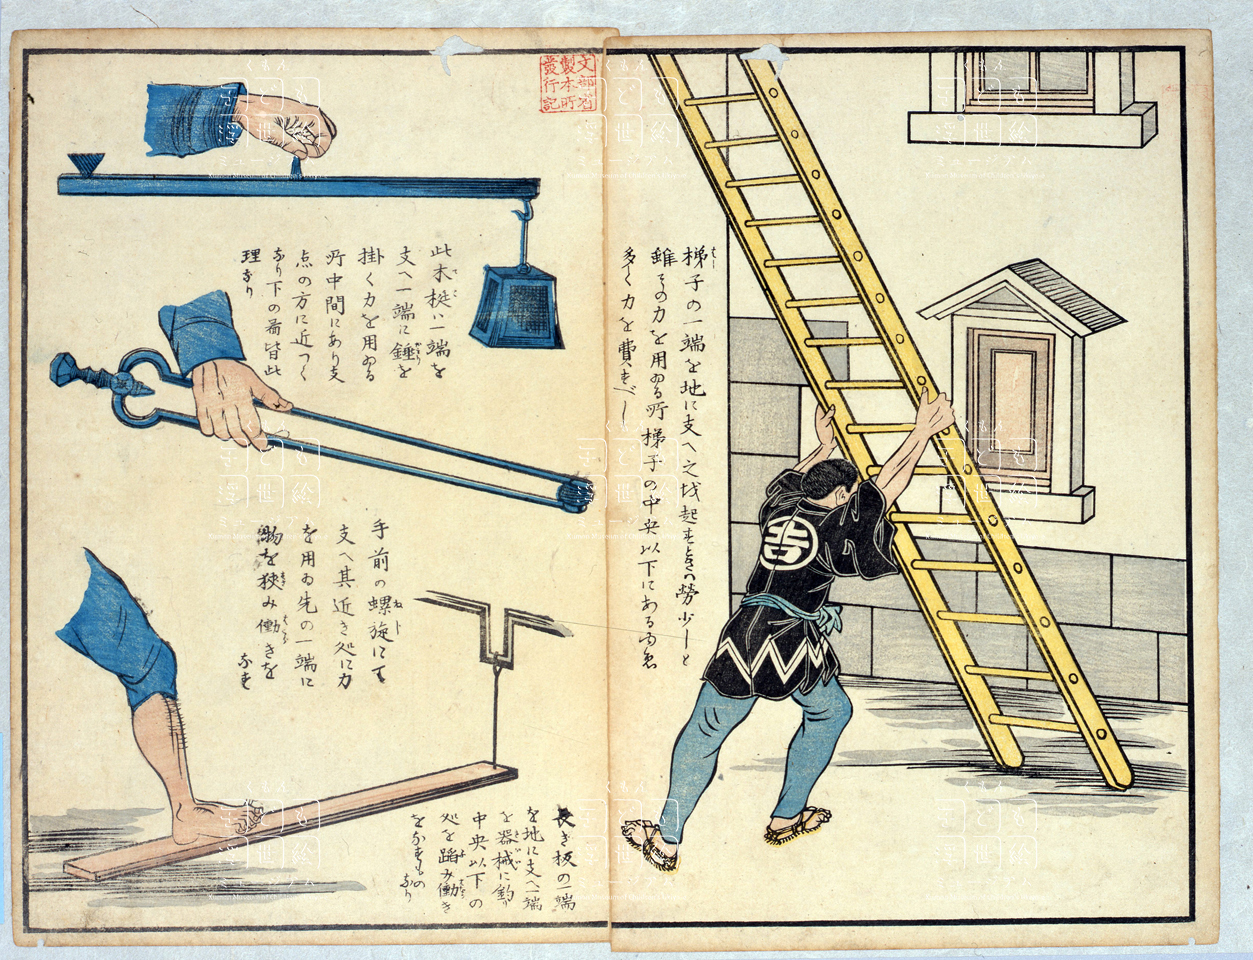 文部省
製本所
發行記
梯子の一端を地に支へ之を起すときハ勞少しと
雖その力を用ゐる所梯子の中央以下にあるゆゑ
多く力を費すべし
此木梃ハ一端を
支へ一端に錘を
掛く力を用ゐる
所中間にあり支
点の方に近つく
なり下の圖皆此
理なり
手前の螺旋にて
支へ其近き処に力
を用ゐ先の一端に
物を狹み働きを
なす
長き板の一端
を地に支へ一端
を器械に釣り
中央以下の
処を踏み働き
をなすものなり
くもん
子ども
浮世絵
ミュージアム